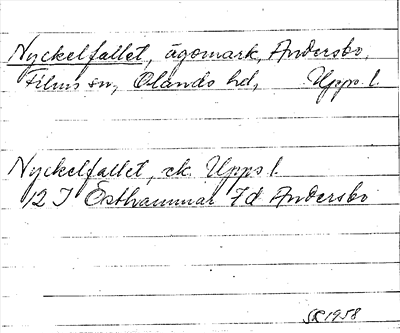 Nyckelfallet, ägomark, Andersbo,
Films sn, Olands hd, Upps. l.
Nyckelfallet, ek. Upps l.
12 I Östhammar 7d Andersbo
1958